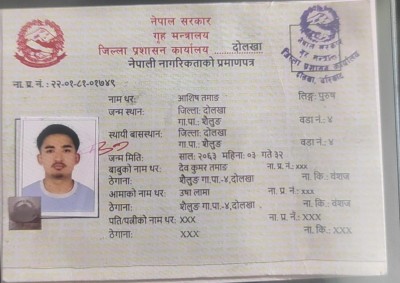 नेपाल सरकार
गृह मन्त्रालय
जिल्ला प्रशासन कार्यालय, दोलखा
नेपाली नागरिकताको प्रमाणपत्र
ना. प्र. नं. : २२-०१-८१-०१७४९
नाम थर: आशिष तमाङ लिङ्ग: पुरुष
जन्म स्थान: जिल्ला: दोलखा
गा.पा.: शैलुङ वडा नं.: ४
स्थायी बासस्थान: जिल्ला: दोलखा
गा.पा.: शैलुङ वडा नं.: ४
जन्म मिति: साल: २०६३ महिना: ०३ गते:
बाबुको नाम थर: देव कुमार तमाङ ना. प्र. नं.: xxx
ठेगाना: शैलुङ गा.पा.-४,दोलखा ना. कि.: वंशज
आमाको नाम थर: उषा लामा ना. प्र. नं.: xxx
ठेगाना: शैलुङ गा.पा.-४,दोलखा ना. कि.: वंशज
पति/पत्नीको नाम थर: xxx ना. प्र. नं.: XXX
ठेगाना: XXX ना. कि.: XXX
नेपाल सरकार
गृह मन्त्रालय
जिल्ला प्रशासन कार्यालय